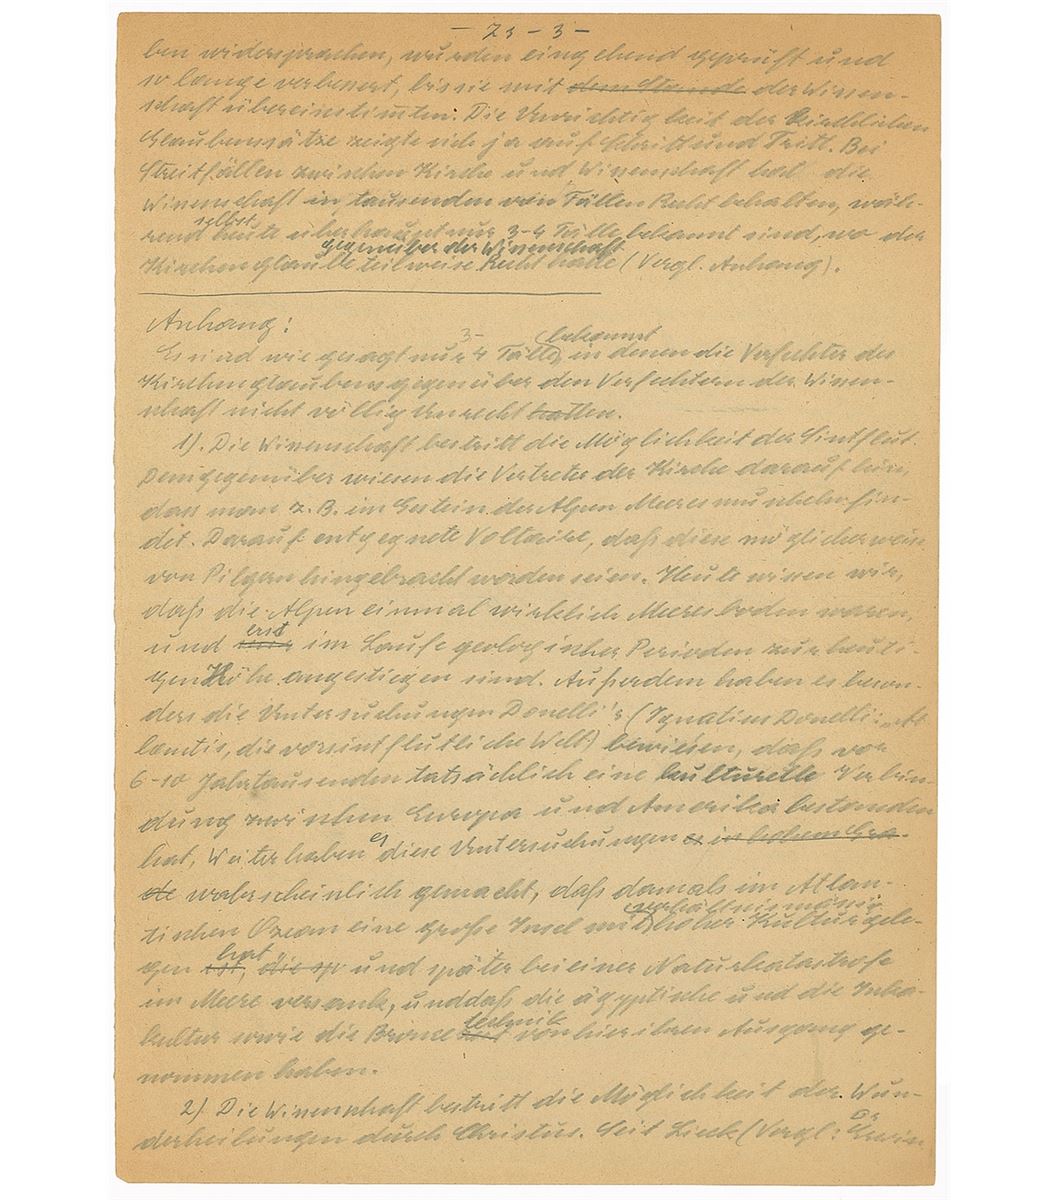 - 23 - 3 -
ben widersprachen, wurden eingehend geprüft und
so lange verbessert, bis sie mit dem Stande der Wissen-
schaft übereinstimten. Die Unrichtigkeit der kirchlichen
Glaubenssätze zeigte sich ja auf Schritt und Tritt. Bei
Streitfällen zwischen Kirche und Wissenschaft hat die
Wissenschaft in tausenden von Fällen Recht behalten, wäh-
selbst
rend heute überhaupt nur 3-4 Fälle bekannt sind, wo der
gegenüber der Wissenschaft
Kirchenglaube teilweise Recht hatte (Vergl. Anhang).
Anhang:
3- bekannt
Es sind wie gesagt nur 4 Fälle, in denen die Verfechter des
Kirchenglaubens gegenüber den Verfechtern der Wissen-
schaft nicht völlig Unrecht hatten.
1). Die Wissenschaft bestritt die Möglichkeit der Sintflut.
Demgegenüber wiesen die Vertreter der Kirche darauf hin,
dass man z. B. im Gestein der Alpen Meeresmuscheln fin-
det. Darauf entgegnete Voltaire, daß diese möglicherweise
von Pilgern hingebracht worden seien. Heute wissen wir,
daß die Alpen einmal wirklich Meeresboden waren,
erst
und im Laufe geologischer Perioden zur heuti-
gen Höhe angestiegen sind. Außerdem haben es beson-
ders die Untersuchungen Donelli's (Ignatius Donelli: „At-
lantis, die vorsintflutliche Welt) bewiesen, daß vor
6-10 Jahrtausenden tatsächlich eine kulturelle Verbin-
dung zwischen Europa und Amerika bestanden
hat, Weiter haben es diese Untersuchungen es in hohem Gra-
de wahrscheinlich gemacht, daß damals im Atlan-
verhältnismässig
tischen Ozean eine große Insel mit hoher Kultur gele-
hat
gen ist, die sp und später bei einer Naturkatastrofe
im Meere versank, und daß die ägyptische und die Inka-
technik
kultur sowie die Bronze von hier ihren Ausgang ge-
nommen haben.
2) Die Wissenschaft bestritt die Möglichkeit der Wun-
Dr
derheilungen durch Christus. Seit Liek (Vergl: Erwin